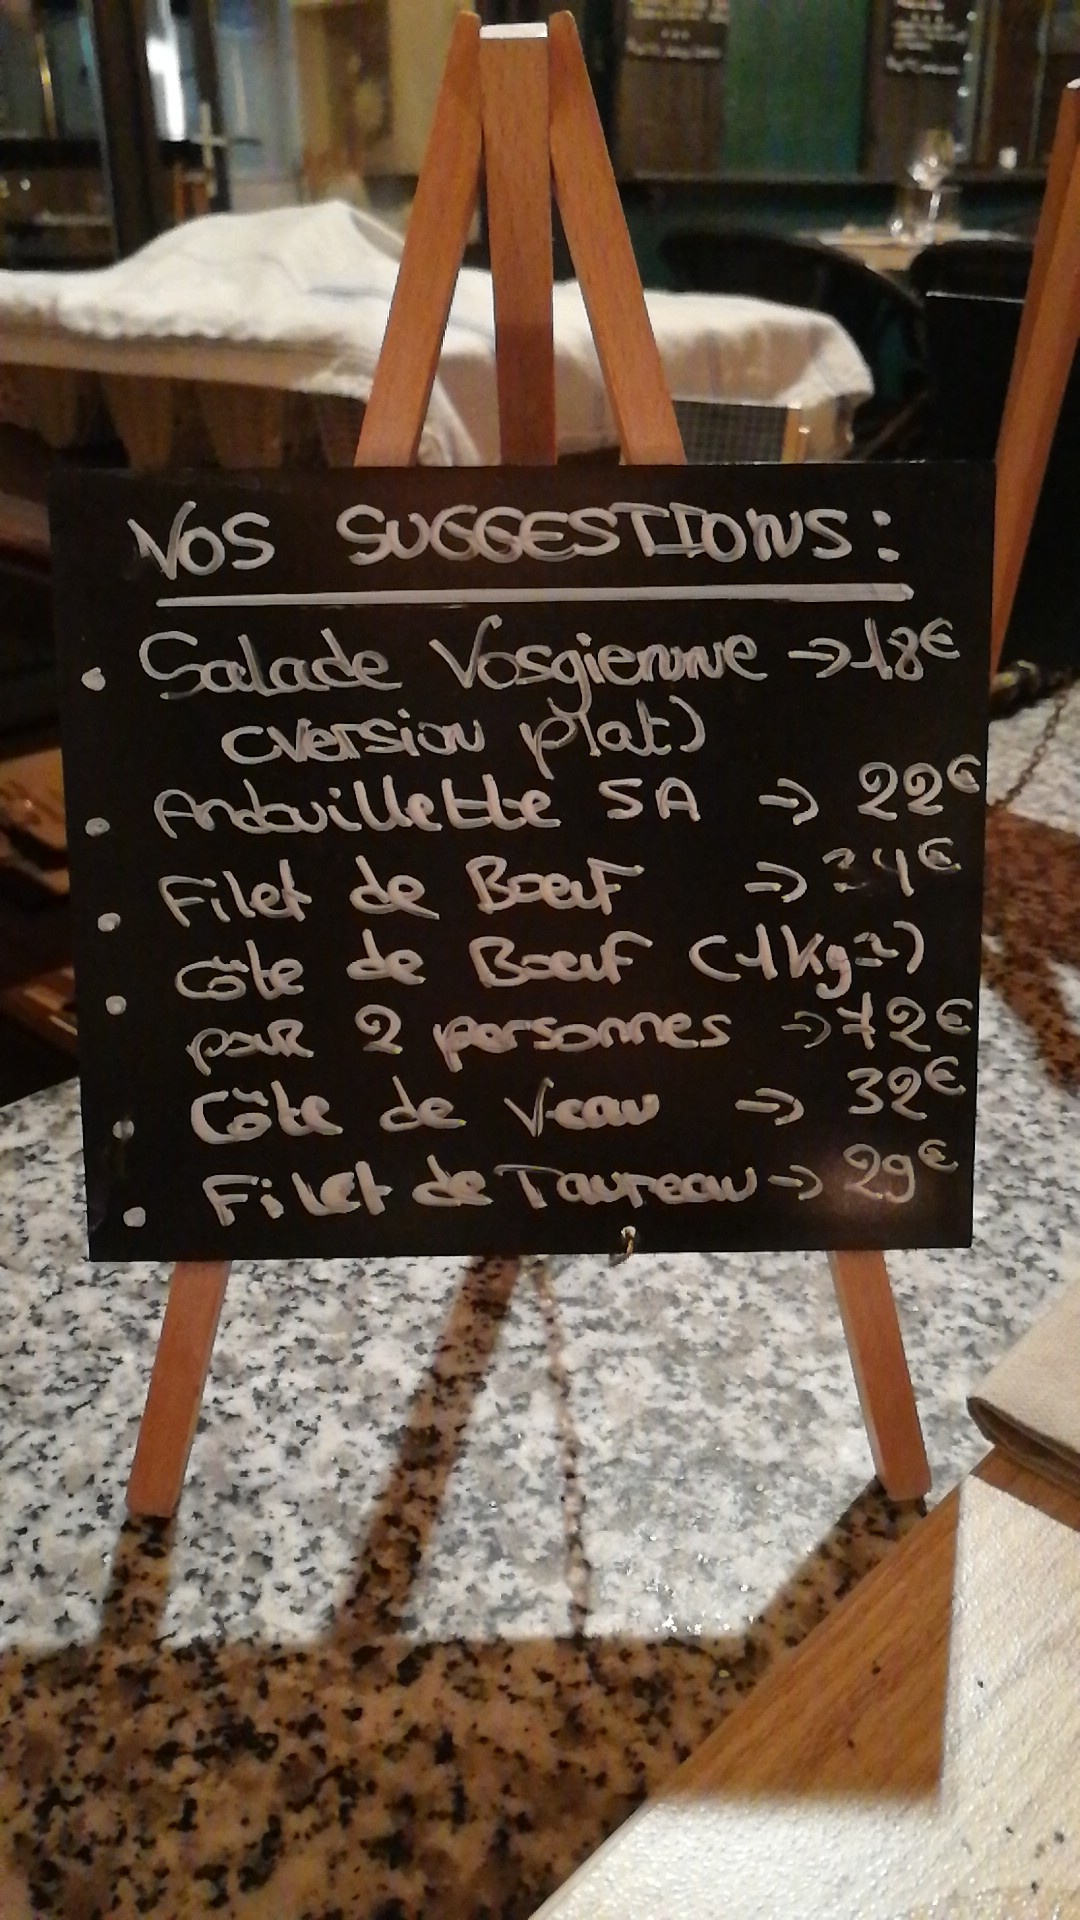 VOS SUGGESTIONS:
• Salade Vosgienne → 18€
(version plat)
• Andouillette 5A → 22€
• Filet de Boeuf → 34€
• Côte de Boeuf (1kg²)
pour 2 personnes → 72€
• Côte de Veau → 32€
• Filet de Taureau → 29€